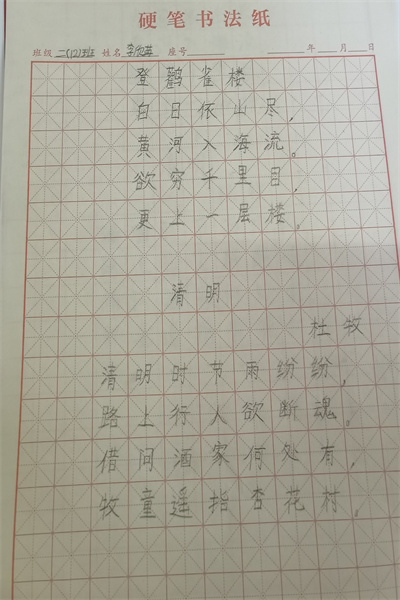 硬笔书法纸
班级 二(12)班 姓名 座号 年 月 日
登鹳雀楼
白日依山尽，
黄河入海流。
欲穷千里目，
更上一层楼。
清明
杜牧
清明时节雨纷纷，
路上行人欲断魂。
借问酒家何处有，
牧童遥指杏花村。